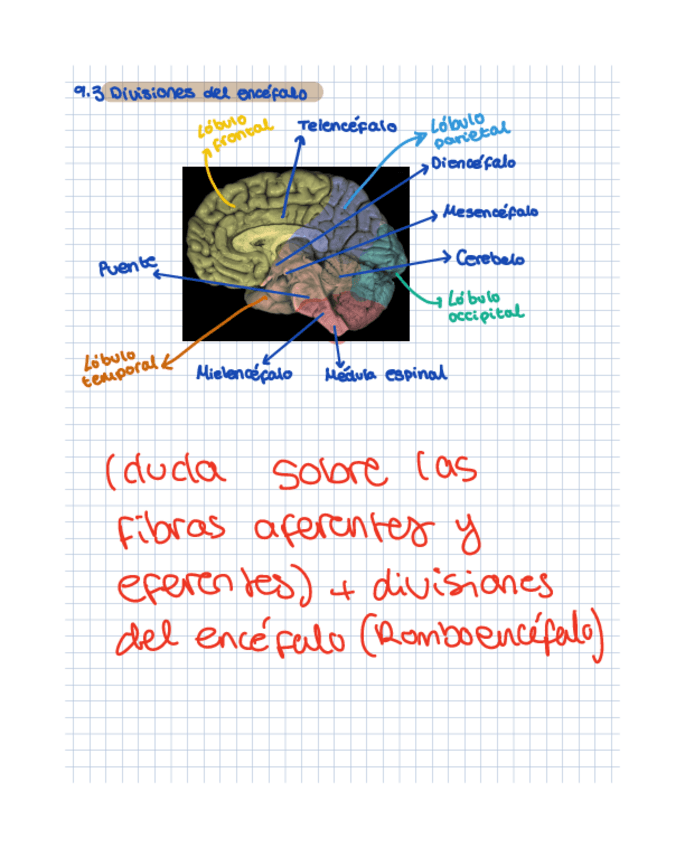 9.3 Divisiones del encéfalo
Lóbulo
frontal
Telencéfalo
Lóbulo
parietal
Diencéfalo
Mesencéfalo
Puente
Cerebelo
Lóbulo
occipital
Lóbulo
temporal
Mielencéfalo
Médula espinal
(duda sobre las
fibras aferentes y
eferentes) + divisiones
del encéfalo (Romboencéfalo)